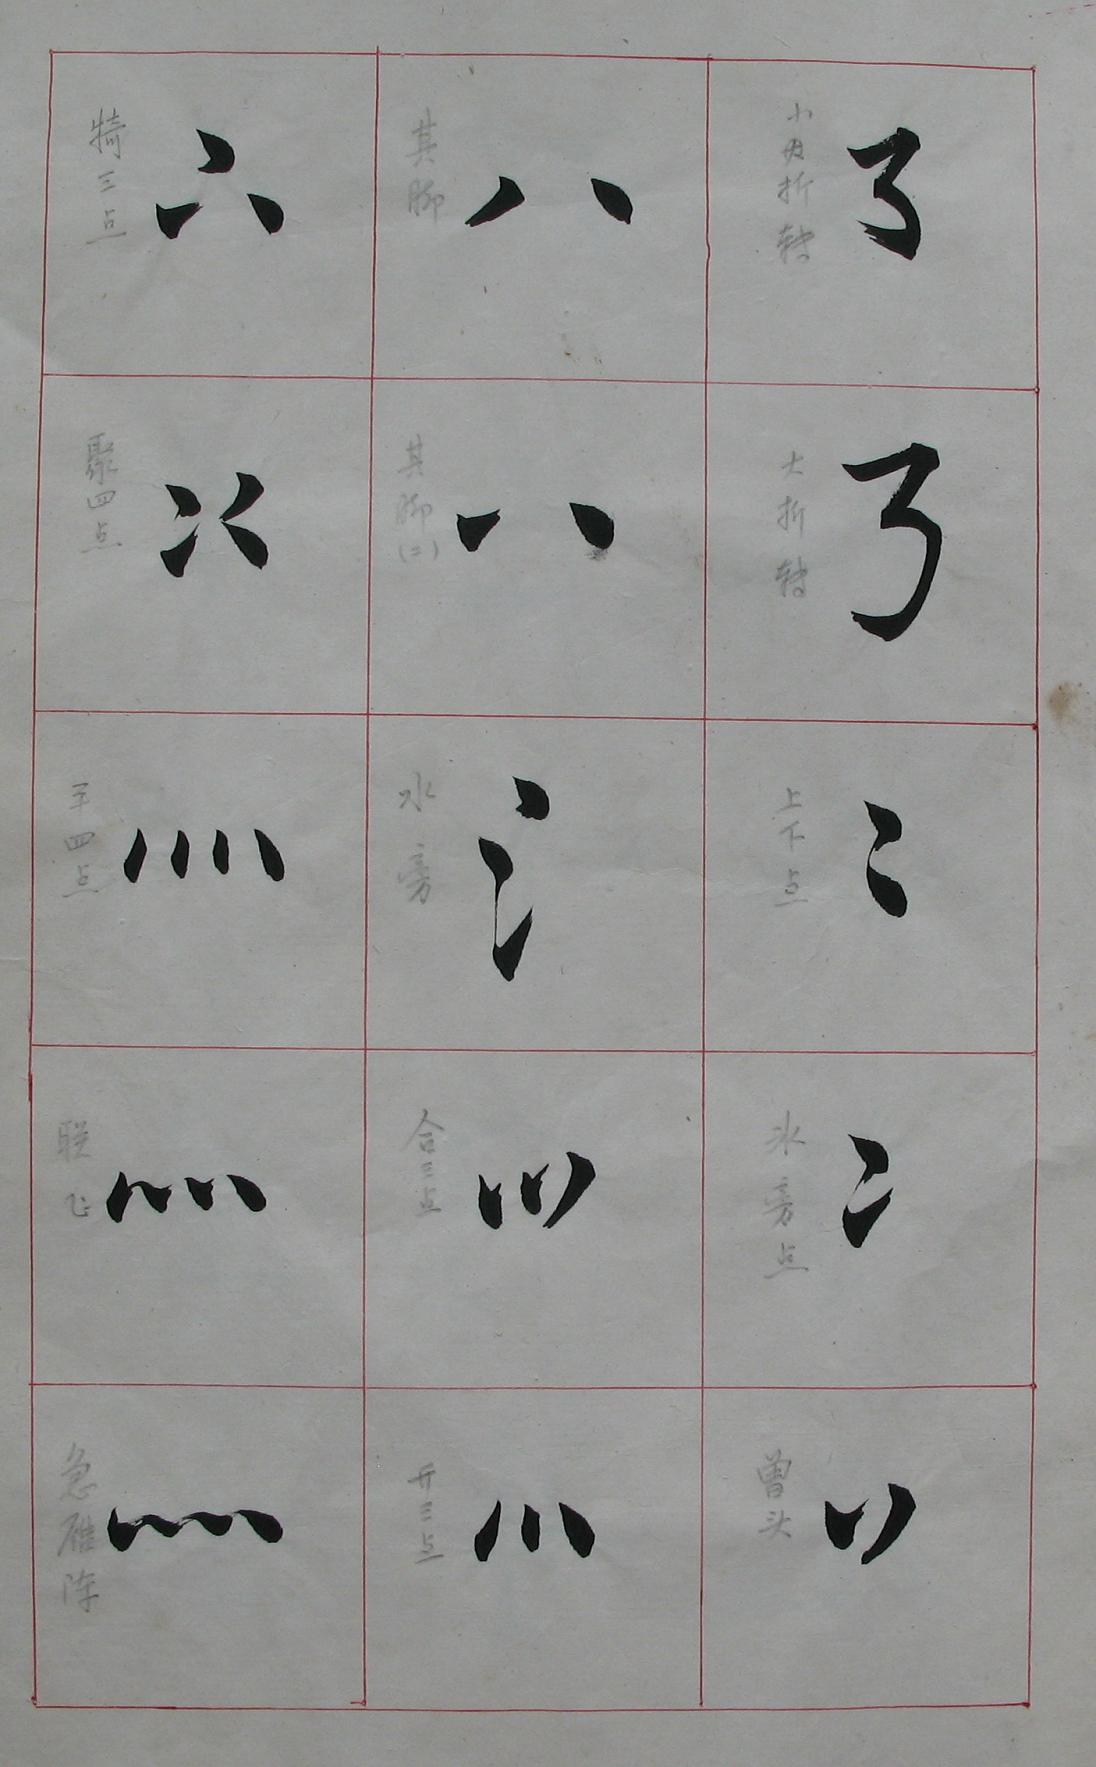 折转
大折转
上下点
氷旁点
曾头
其脚
其脚(二)
水旁
合三点
开三点
犄三点
聚四点
平四点
联飞
急雁阵